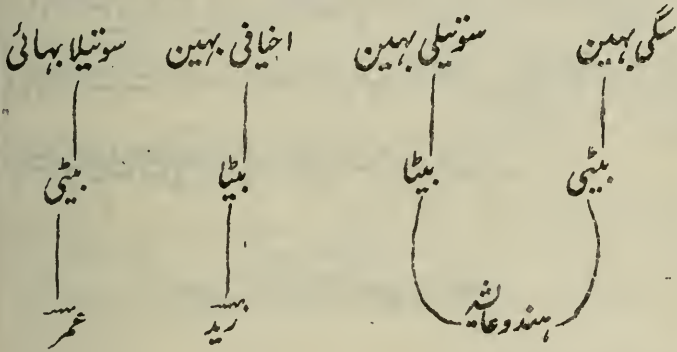 سگی بہین سوتیلی بہین اخیافی بہین سوتیلا بہائی
بیٹی بیٹا بیٹا بیٹی
ہندوعایشہ زید عمر